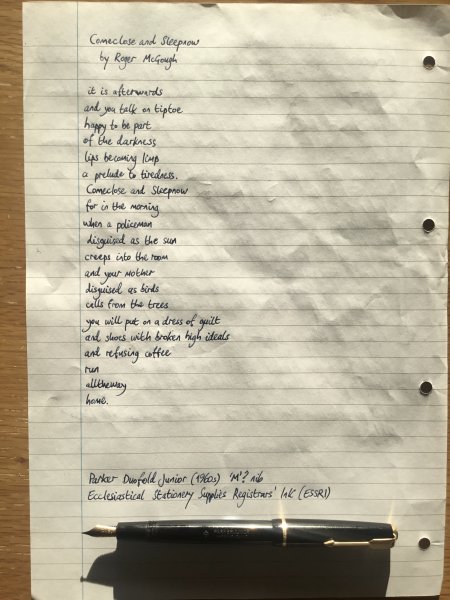 Comeclose and Sleepnow
by Roger McGough
it is afterwards
and you talk on tiptoe
happy to be part
of the darkness
lips becoming limp
a prelude to tiredness.
Comeclose and Sleepnow
for in the morning
when a policeman
disguised as the sun
creeps into the room
and your mother
disguised as birds
calls from the trees
you will put on a dress of guilt
and shoes with broken high ideals
and refusing coffee
run
alltheway
home.
Parker Duofold Junior (1960s) 'M'? nib
Ecclesiastical Stationery Supplies Registrars' Ink (ESSRI)